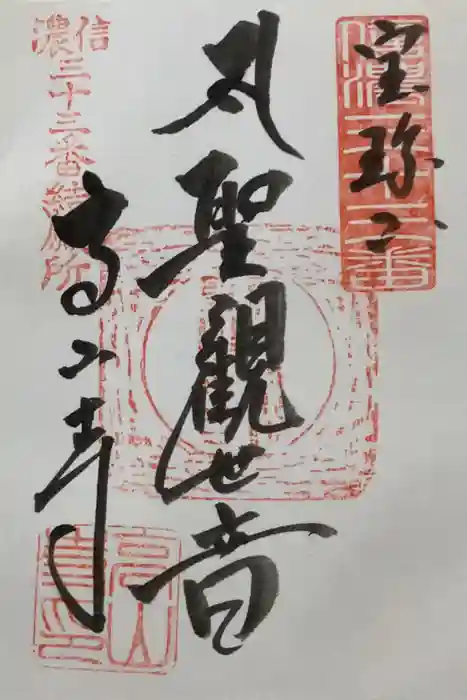 信濃三十三番
聖観世音
高山寺
信濃三十三番結願所